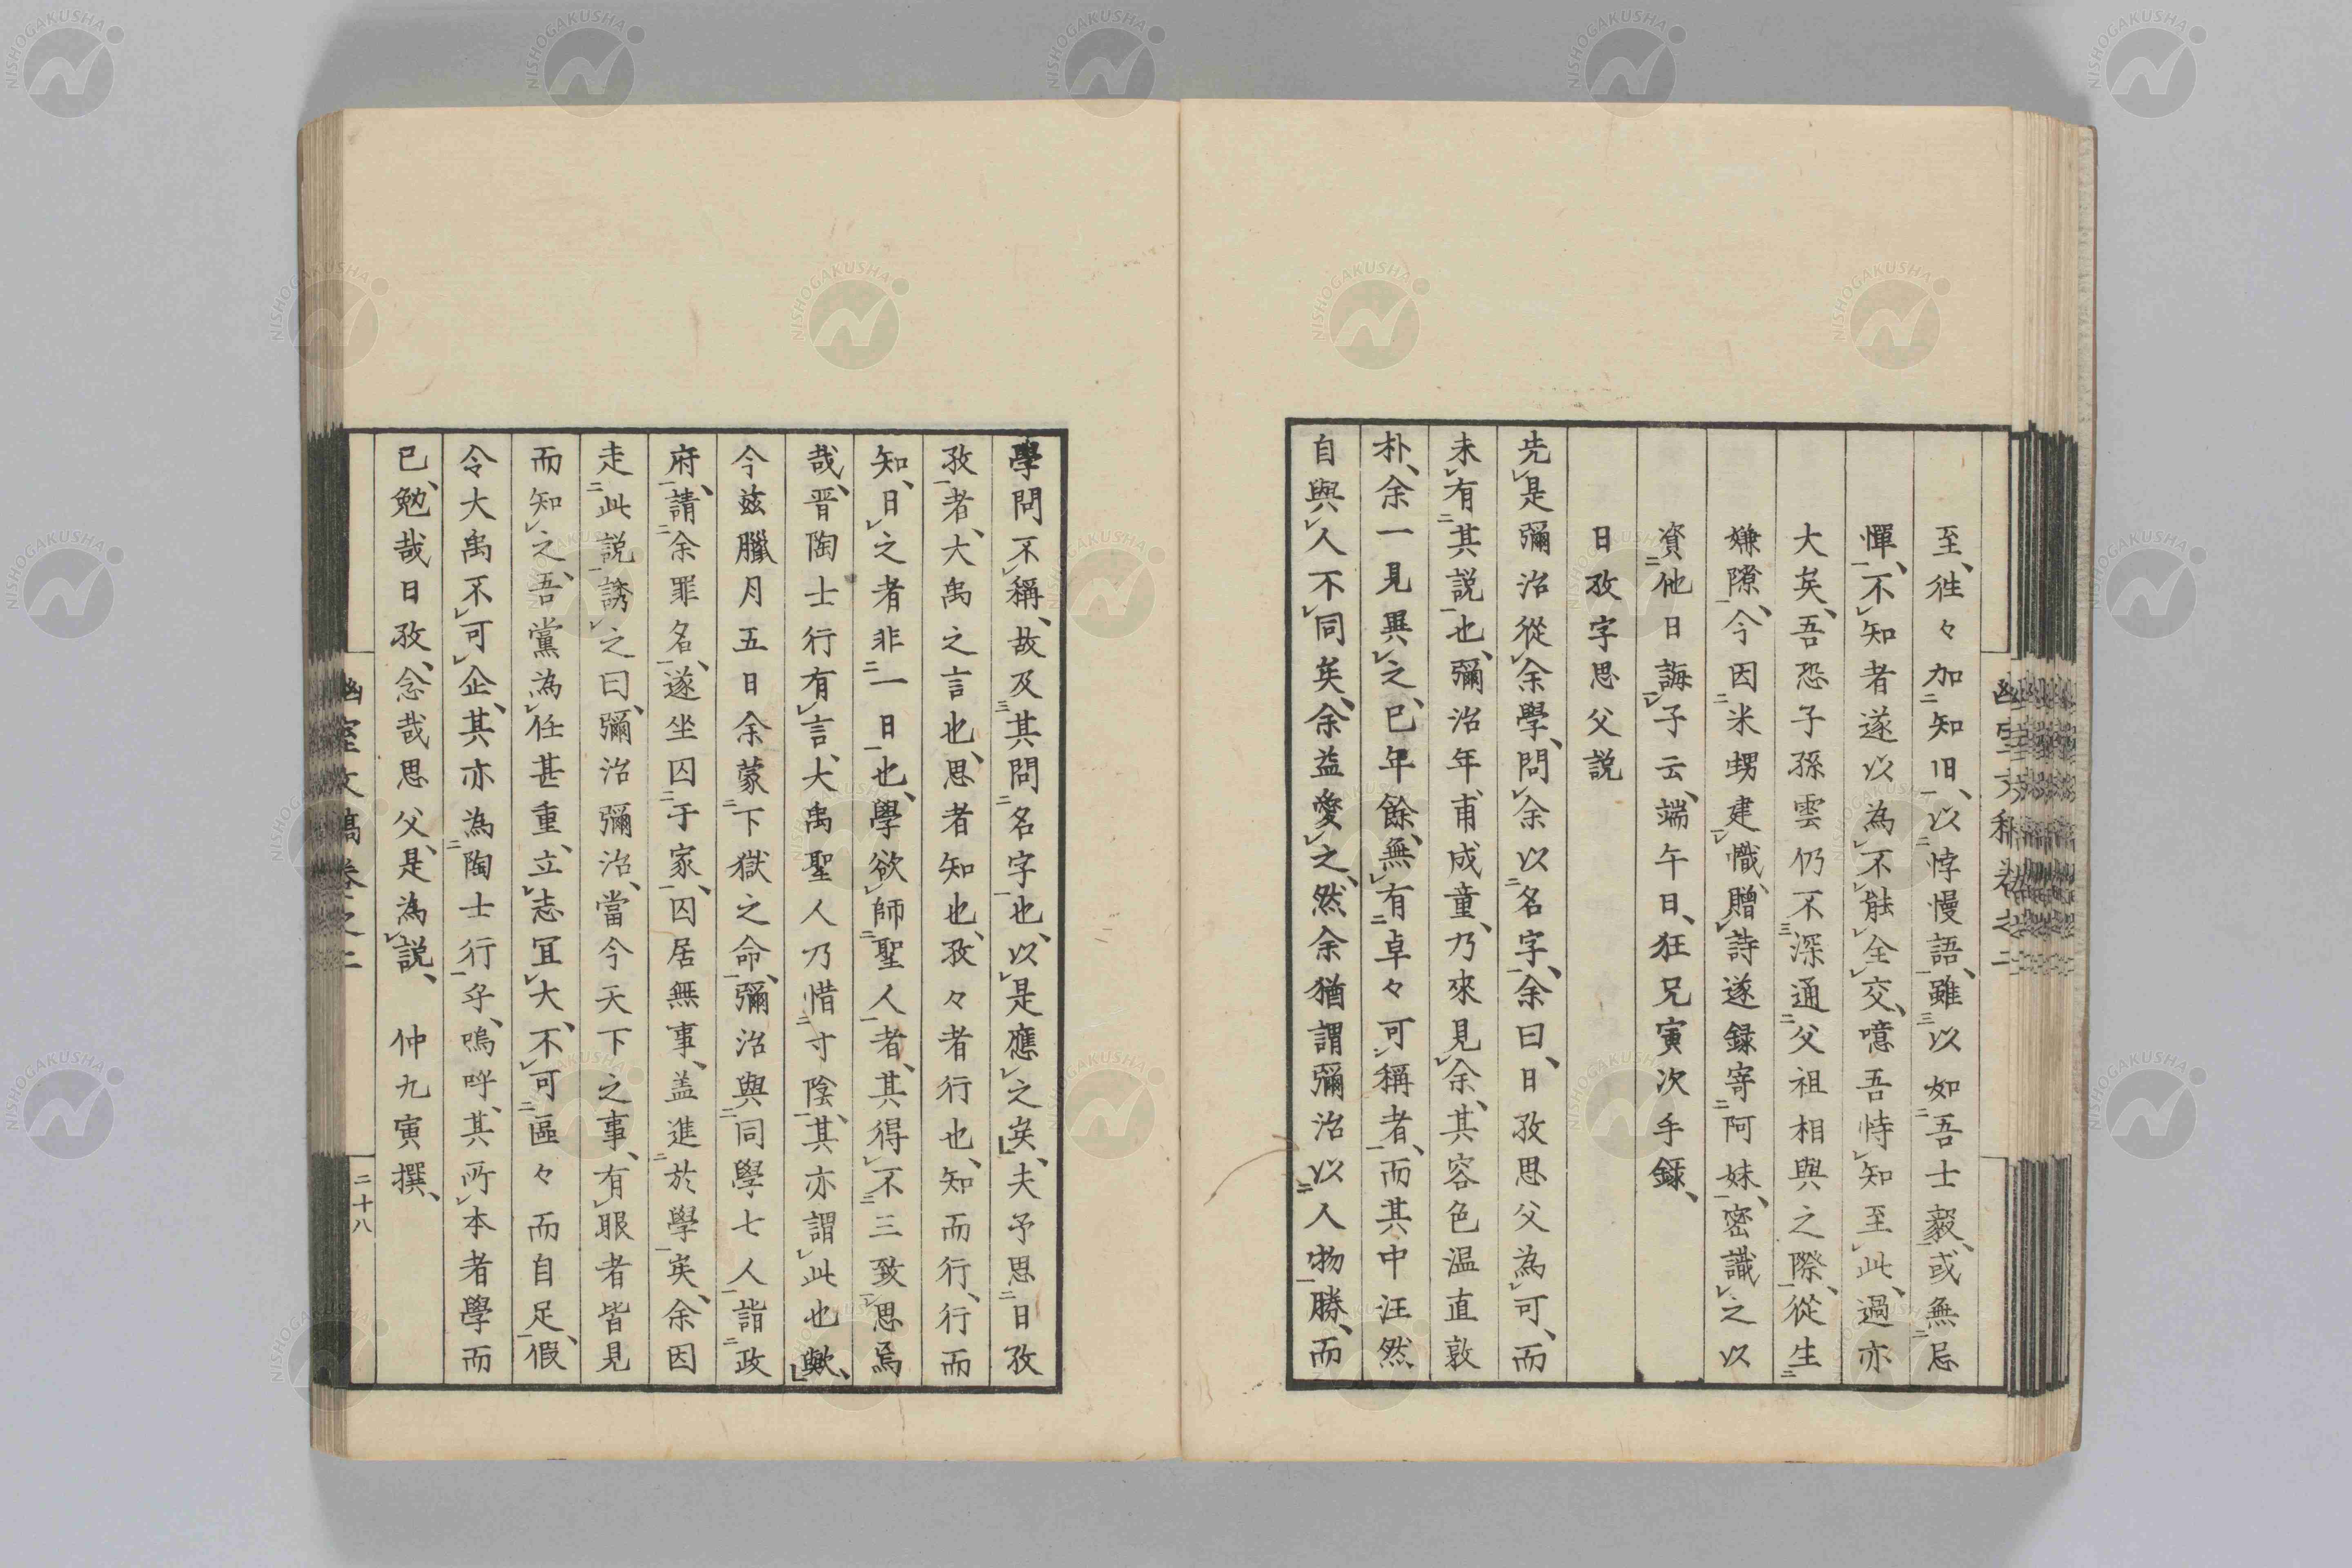 至、徃々加知旧、以悖慢語、雖以如吾士毅、或無忌
憚、不知者遂以為不能全交、噫吾恃知至此、過亦
大矣、吾恐子孫雲仍不深通父祖相與之際、從生
嫌隙、今因米甥建幟、贈詩遂録寄阿妹、密識之以
資他日誨子云、端午日、狂兄寅次手録、
日孜字思父説
先是彌治從余學、問余以名字、余曰、日孜思父為可、而
未有其説也、彌治年甫成童、乃來見余、其容色温直敦
朴、余一見異之、已年餘、無有卓々可稱者、而其中汪然
自與人不同矣、余益愛之、然余猶謂彌治以人物勝、而
學問不稱、故及其問名字也、以是應之矣、夫予思日孜
孜者、大禹之言也、思者知也、孜々者行也、知而行、行而
知、日之者非一日也、學欲師聖人者、其得不三致思焉
哉、晋陶士行有言、大禹聖人乃惜寸陰、其亦謂此也歟、
今玆臘月五日余蒙下獄之命、彌治與同學七人詣政
府、請余罪名、遂坐囚于家、囚居無事、盖進於學矣、余因
走此説誘之曰、彌治彌治、當今天下之事、有眼者皆見
而知之、吾黨為任甚重、立志冝大、不可區々而自足、假
令大禹不可企、其亦為陶士行乎、嗚呼、其所本者學而
已、勉哉日孜、念哉思父、是為説、　仲九寅撰、
幽室文稿卷之二
二十八
NISHOGAKUSHA